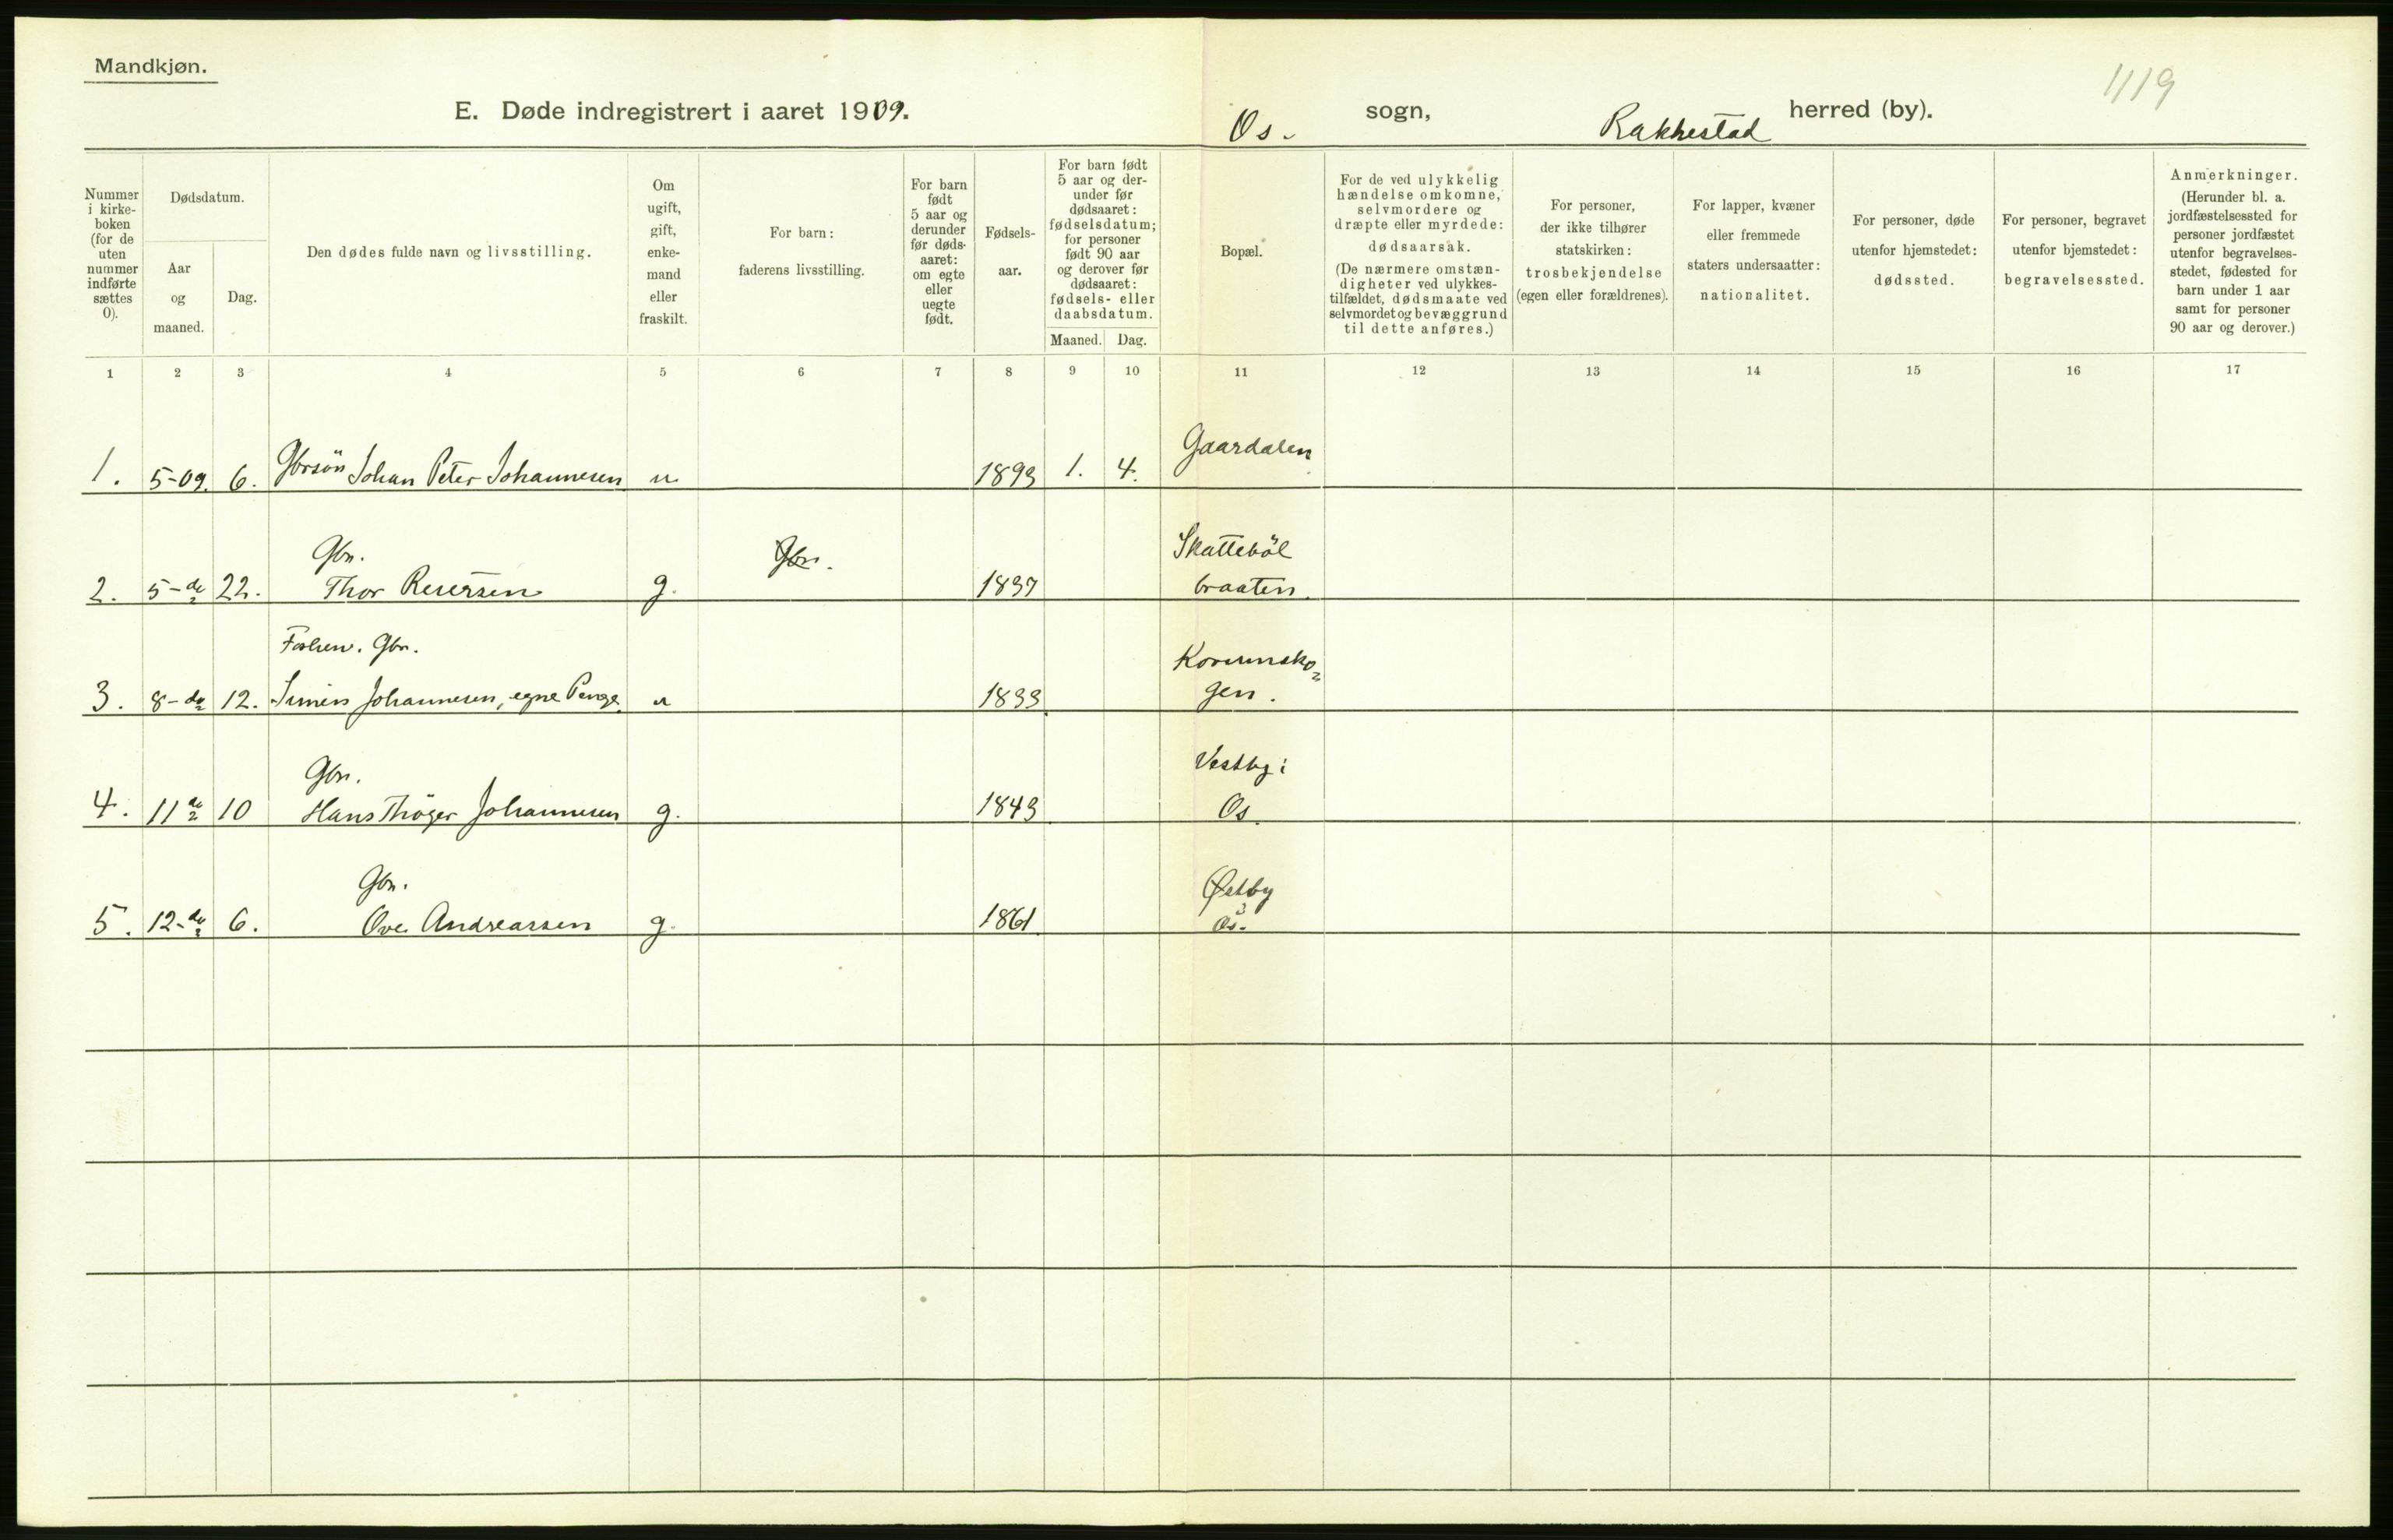 Mandkjøn.
1119
E. Døde indregistrert i aaret 1909. Os. sogn, Rakkestad herred (by).
Nummer i kirkeboken (for de uten nummer indførte sættes 0).
Dødsdatum.
Aar og maaned.
Dag.
Den dødes fulde navn og livsstilling.
Om ugift, gift, enkemand eller fraskilt.
For barn: faderens livsstilling.
For barn født 5 aar og derunder før dødsaaret: om egte eller uegte født.
Fødselsaar.
For barn født 5 aar og derunder før dødsaaret: fødselsdatum; for personer født 90 aar og derover før dødsaaret: fødsels- eller daabsdatum.
Maaned. Dag.
Bopæl.
For de ved ulykkelig hændelse omkomne, selvmordere og dræpte eller myrdede: dødsaarsak. (De nærmere omstændigheter ved ulykkestilfældet, dødsmaate ved selvmordet og bevæggrund til dette anføres.)
For personer, der ikke tilhører statskirken: trosbekjendelse (egen eller forældrenes).
For lapper, kvæner eller fremmede staters undersaatter: nationalitet.
For personer, døde utenfor hjemstedet: dødssted.
For personer, begravet utenfor hjemstedet: begravelsessted.
Anmerkninger. (Herunder bl. a. jordfæstelsessted for personer jordfæstet utenfor begravelsesstedet, fødested for barn under 1 aar samt for personer 90 aar og derover.)
1 2 3 4 5 6 7 8 9 10 11 12 13 14 15 16 17
1. 5-09. 6. Gbrsön Johan Peter Johannesen u 1893 1. 4. Gaardalen
Gbr. Gbr. Skatteböl
2. 5-do 22. Thor Reiersen g. 1837 braaten.
Forhen. Gbr.
3. 8-do 12. Simen Johannesen, egne Penge. u 1833
gen.
Gbr. Vestby i
4. 11 do 10 Hans Thöger Johannesen g. 1843 Os.
Gbr. Østby
5. 12-do 6. Ove Andreassen g. 1861. Os.